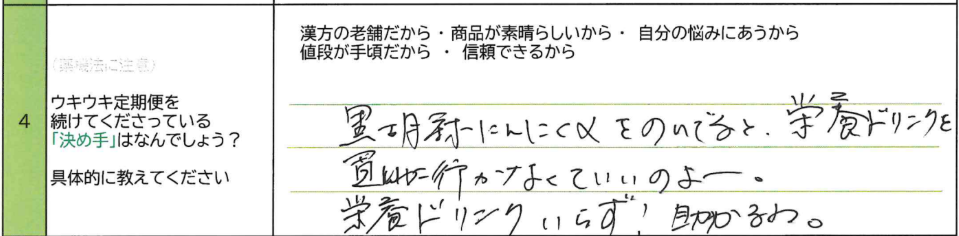 漢方の老舗だから・商品が素晴らしいから・ 自分の悩みにあうから
値段が手頃だから ・ 信頼できるから
(薬機法に注意)
4
ウキウキ定期便を
続けてくださっている
「決め手」はなんでしょう？
具体的に教えてください
黒胡麻にんにくα をのいでると、栄養ドリンクを
買いに行かなくていいのよー。
栄養ドリンク いらず! 助かるわ。